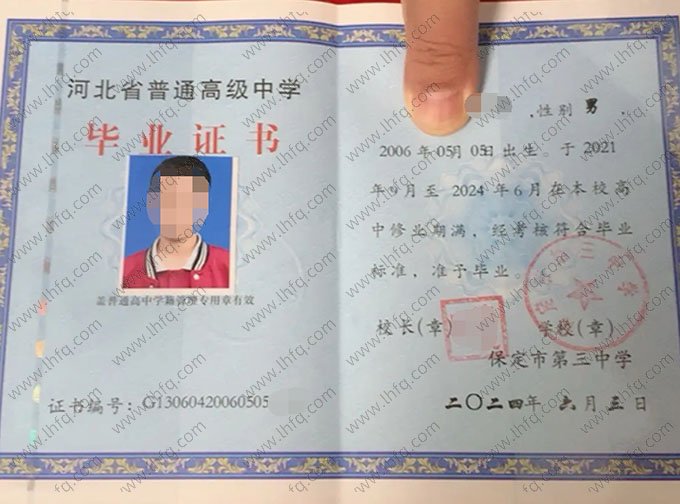 河北省普通高级中学
毕业证书
盖普通高中学籍管理专用章有效
证书编号：G13060420060505
，性别 男 ，
2006 年 05月 05日 出生。于 2021
年 9 月 至 2024 年 6 月 在 本 校 高
中 修 业 期 满，经 考 核 符 合 毕 业
标准，准予毕业。
校长(章)
学校(章)
保定市第三中学
二〇二四年 六 月 三 日
www.lhfq.com